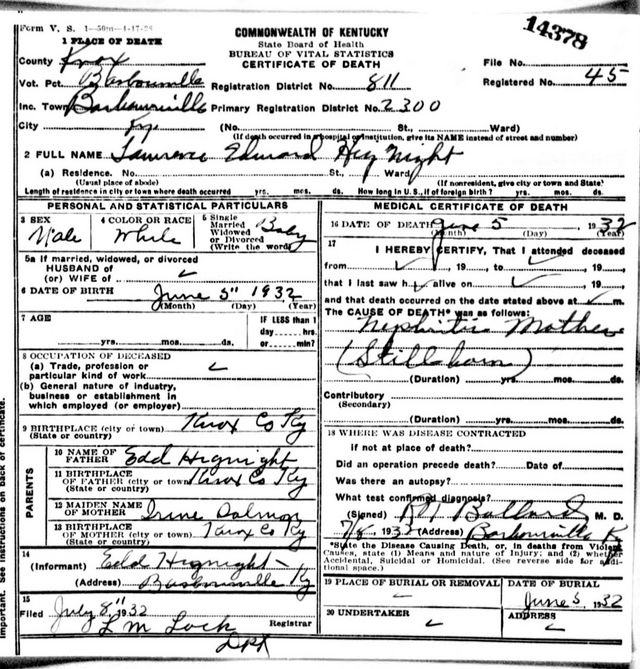 14378
Form V. S. 1—50m—1-17-28
COMMONWEALTH OF KENTUCKY
State Board of Health
BUREAU OF VITAL STATISTICS
CERTIFICATE OF DEATH
1 PLACE OF DEATH
County Knox
File No.
Vot. Pct. Barbourville Registration District No. 811
Registered No. 45
Inc. Town Barbourville Primary Registration District No. 2300
City Ky. (No. St., Ward)
(If death occurred in a hospital or institution, give its NAME instead of street and number)
2 FULL NAME Lawrence Edward Hignight
(a) Residence. No. St., Ward.
(Usual place of abode) (If nonresident, give city or town and State)
Length of residence in city or town where death occurred yrs. mos. ds. How long in U.S., if of foreign birth? yrs. mos. ds.
PERSONAL AND STATISTICAL PARTICULARS
3 SEX
Male
4 COLOR OR RACE
White
5 Single
Married
Widowed
or Divorced
(Write the word)
Baby
5a If married, widowed, or divorced
HUSBAND of
(or) WIFE of
6 DATE OF BIRTH June 5" 1932
(Month) (Day) (Year)
7 AGE
yrs. mos. ds.
IF LESS than 1
day hrs.
or min?
8 OCCUPATION OF DECEASED
(a) Trade, profession or
particular kind of work
(b) General nature of industry,
business or establishment in
which employed (or employer)
9 BIRTHPLACE (city or town) Knox Co Ky
(State or country)
PARENTS
10 NAME OF
FATHER Edd Hignight
11 BIRTHPLACE
OF FATHER (city or town) Knox Co Ky
(State or country)
12 MAIDEN NAME
OF MOTHER Irine
13 BIRTHPLACE
OF MOTHER (city or town) Knox Co Ky
(State or country)
14
(Informant) Edd Hignight
(Address) Barbourville Ky
15
Filed July 8" 1932
L M Lock
Registrar
Dpt
MEDICAL CERTIFICATE OF DEATH
16 DATE OF DEATH June 5 1932
(Month) (Day) (Year)
17
I HEREBY CERTIFY, That I attended deceased
from , 19 , to , 19 ,
that I last saw h alive on , 19 ,
and that death occurred on the date stated above at m.
The CAUSE OF DEATH* was as follows:
Nephritis Mother
(Stillborn)
(Duration) yrs. mos. ds.
Contributory
(Secondary)
(Duration) yrs. mos. ds.
18 WHERE WAS DISEASE CONTRACTED
if not at place of death?
Did an operation precede death? Date of
Was there an autopsy?
What test confirmed diagnosis?
(Signed) Ballard M. D.
7/8, 1932 (Address) Barbourville Ky
*State the Disease Causing Death, or, in deaths from Violent
Causes, state (1) Means and nature of Injury; and (2) whether
Accidental, Suicidal or Homicidal. (See reverse side for addi-
tional space.)
19 PLACE OF BURIAL OR REMOVAL
DATE OF BURIAL
June 5, 1932
20 UNDERTAKER
ADDRESS
important. See instructions on back of certificate.